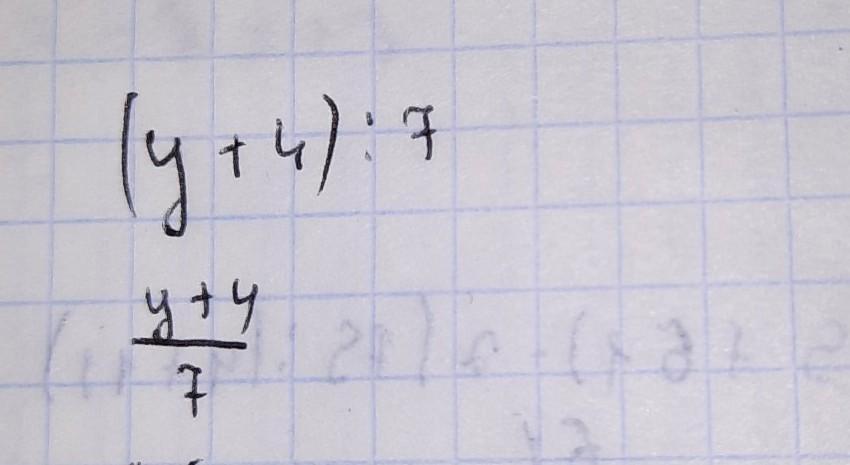 (y + 4) : 7
y + 4
7